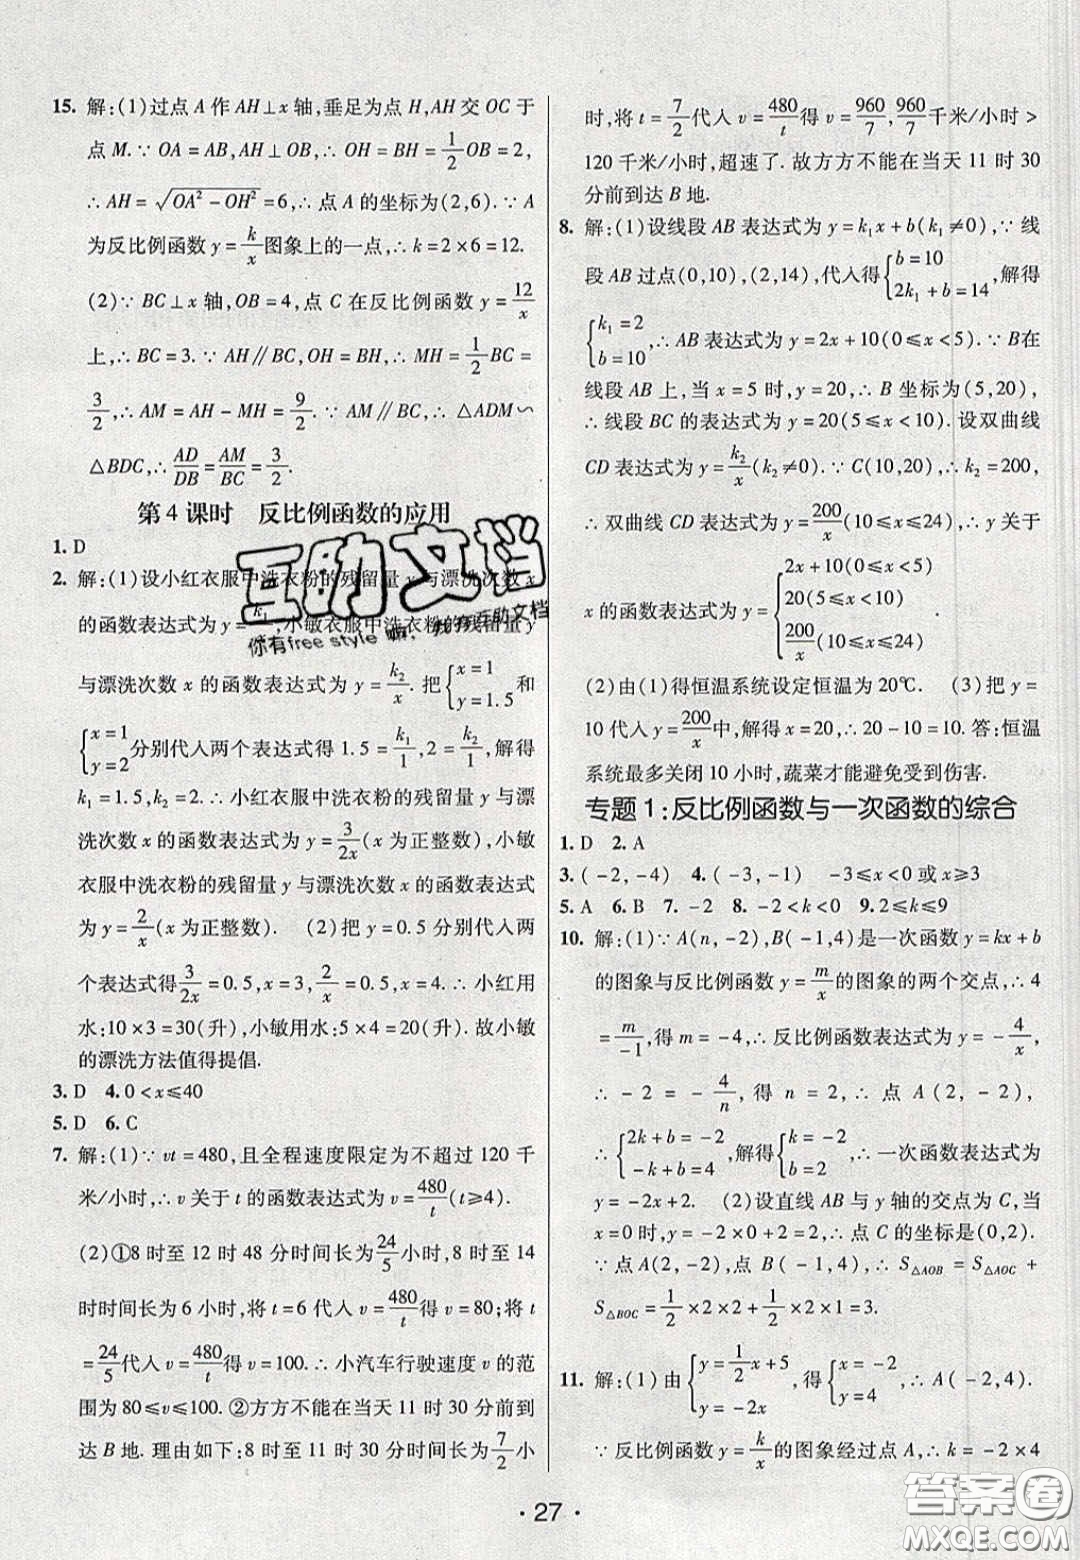 15. 解:(1)过点 A 作 AH⊥x 轴,垂足为点 H,AH 交 OC 于
点 M.∵ OA = AB,AH⊥OB,∴ OH = BH = 1/2 OB = 2,
∴ AH = √(OA² - OH²) = 6,∴ 点 A 的坐标为(2,6). ∵ A
为反比例函数 y = k/x 图象上的一点,∴ k = 2×6 = 12.
(2)∵ BC⊥x 轴,OB = 4,点 C 在反比例函数 y = 12/x
上,∴ BC = 3. ∵ AH∥BC,OH = BH,∴ MH = 1/2 BC =
3/2,∴ AM = AH - MH = 9/2. ∵ AM∥BC,∴ △ADM∽
△BDC,∴ AD/DB = AM/BC = 3/2.
第 4 课时 反比例函数的应用
1. D
2. 解:(1)设小红衣服中洗衣粉的残留量 x 与漂洗次数 x
的函数表达式为 y = k₁/,小敏衣服中洗衣粉的残留量 y
与漂洗次数 x 的函数表达式为 y = k₂/x. 把{x = 1 y = 1.5 和
{x = 1 y = 2 分别代入两个表达式得 1.5 = k₁/1,2 = k₂/1,解得
k₁ = 1.5,k₂ = 2. ∴ 小红衣服中洗衣粉的残留量 y 与漂
洗次数 x 的函数表达式为 y = 3/2x(x 为正整数),小敏
衣服中洗衣粉的残留量 y 与漂洗次数 x 的函数表达式
为 y = 2/x(x 为正整数). (2)把 y = 0.5 分别代入两
个表达式得 3/2x = 0.5,x = 3,2/x = 0.5,x = 4. ∴ 小红用
水:10×3 = 30(升),小敏用水:5×4 = 20(升). 故小敏
的漂洗方法值得提倡.
3. D 4. 0 < x ≤ 40
5. D 6. C
7. 解:(1)∵ vt = 480,且全程速度限定为不超过 120 千
米/小时,∴ v 关于 t 的函数表达式为 v = 480/t (t≥4).
(2)①8 时至 12 时 48 分时间长为 24/5 小时,8 时至 14
时时间长为 6 小时,将 t = 6 代入 v = 480/t 得 v = 80;将 t
= 24/5 代入 v = 480/t 得 v = 100. ∴ 小汽车行驶速度 v 的范
围为 80≤v≤100. ②方方不能在当天 11 时 30 分前到
达 B 地. 理由如下:8 时至 11 时 30 分时间长为 7/2 小
时,将 t = 7/2 代入 v = 480/t 得 v = 960/7,960/7 千米/小时 >
120 千米/小时,超速了. 故方方不能在当天 11 时 30
分前到达 B 地.
8. 解:(1)设线段 AB 表达式为 y = k₁x + b(k₁≠0),∵ 线
段 AB 过点(0,10),(2,14),代入得{b = 10 2k₁ + b = 14,解得
{k₁ = 2 b = 10,∴ AB 表达式为 y = 2x + 10(0≤x < 5). ∵ B 在
线段 AB 上,当 x = 5 时,y = 20,∴ B 坐标为(5,20),
∴ 线段 BC 的表达式为 y = 20(5≤x < 10). 设双曲线
CD 表达式为 y = k₂/x (k₂≠0). ∵ C(10,20),∴ k₂ = 200,
∴ 双曲线 CD 表达式为 y = 200/x (10≤x≤24),∴ y 关于
x 的函数表达式为 y = {2x + 10(0≤x < 5) 20(5≤x < 10) 200/x (10≤x≤24) .
(2)由(1)得恒温系统设定恒温为 20℃. (3)把 y =
10 代入 y = 200/x 中,解得 x = 20,∴ 20 - 10 = 10. 答:恒温
系统最多关闭 10 小时,蔬菜才能避免受到伤害.
专题 1:反比例函数与一次函数的综合
1. D 2. A
3. (-2,-4) 4. (-3,-1) -3≤x<0 或 x≥3
5. A 6. B 7. -2 8. -2<k<0 9. 2≤k≤9
10. 解:(1)∵ A(n,-2),B(-1,4)是一次函数 y = kx + b
的图象与反比例函数 y = m/x 的图象的两个交点,∴ 4
= m/-1,得 m = -4,∴ 反比例函数表达式为 y = -4/x,
∴ -2 = -4/n,得 n = 2,∴ 点 A(2,-2),
∴ {2k + b = -2 -k + b = 4,解得{k = -2 b = 2,∴ 一次函数表达式为
y = -2x + 2. (2)设直线 AB 与 y 轴的交点为 C,当
x = 0 时,y = -2×0 + 2 = 2,∴ 点 C 的坐标是(0,2).
∵ 点 A(2,-2),点 B(-1,4),∴ S△AOB = S△AOC +
S△BOC = 1/2×2×2 + 1/2×2×1 = 3.
11. 解:(1)由{y = 1/2 x + 5 y = -2x,得{x = -2 y = 4,∴ A(-2,4).
∵ 反比例函数 y = k/x 的图象经过点 A,∴ k = -2×4
· 27 ·
互助文档
你有free style 嘛,我有互助文档
答案圈
MXQE.COM